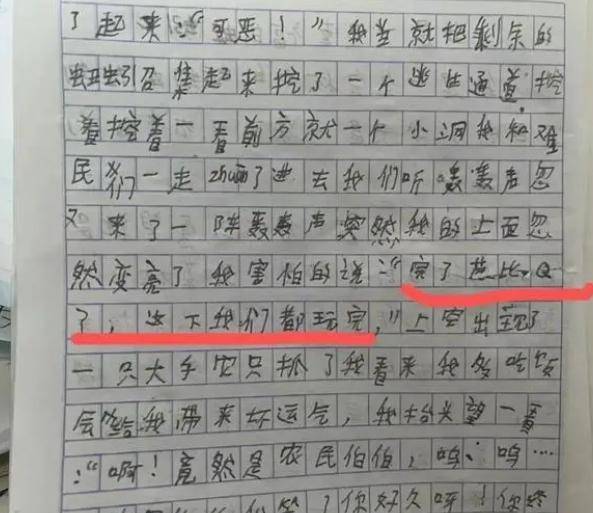 了起来:“可恶！”我当就把剩余的
蚯蚓召集起来挖了一个逃生通道,挖
着挖着一看前方就一个小洞我和难
民们一走zhuan了进去我们听轰轰声忽
又来了一阵轰轰声突然我的上面忽
然变亮了我害怕的说:“完了芭比Q
了，这下我们都玩完，”上空出现了
一只大手农只抓了我看来我多吃饭
会给我带来坏运气，我抬头望一看
:“啊！竟然是农民伯伯，呜、呜…
了你好久呀！你终